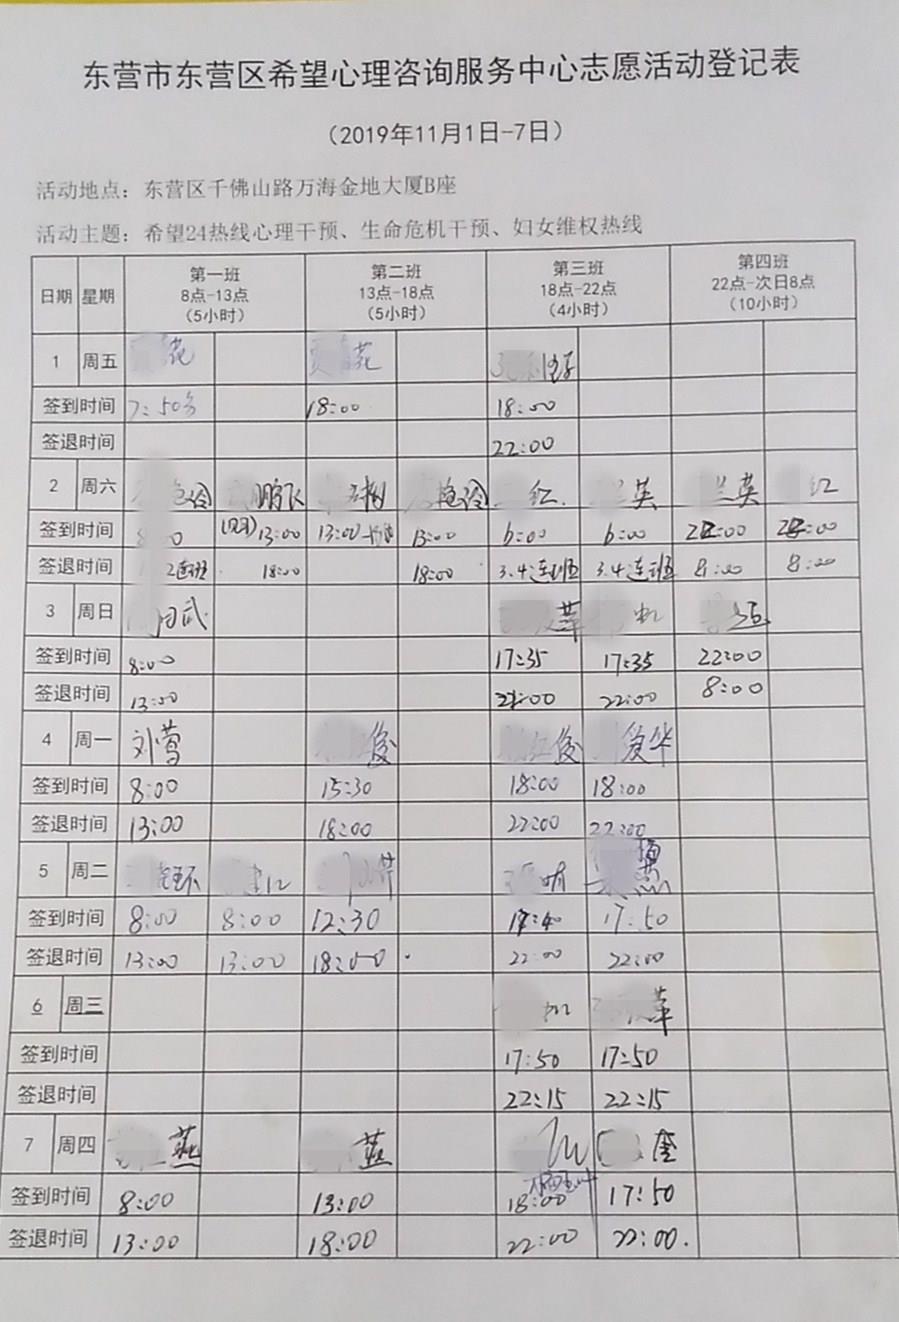 东营市东营区希望心理咨询服务中心志愿活动登记表
（2019年11月1日-7日）
活动地点：东营区千佛山路万海金地大厦B座
活动主题：希望24热线心理干预、生命危机干预、妇女维权热线
日期 星期 第一班 8点-13点 （5小时） 第二班 13点-18点 （5小时） 第三班 18点-22点 （4小时） 第四班 22点-次日8点 （10小时）
1 周五 花 苑
签到时间 7:50分 18:00 18:00
签退时间 22:00
2 周六 艳玲 鹏飞 艳玲 红 兰英 兰英 红
签到时间 13:00 13:00 13:00 6:00 6:00 22:00 22:00
签退时间 2连班 18:00 18:00 3.4连班 3.4连班 8:00 8:00
3 周日 武 萍
签到时间 8:00 17:35 17:35 22:00
签退时间 13:00 22:00 22:00 8:00
4 周一 刘莺 俊 红俊 爱华
签到时间 8:00 15:30 18:00 18:00
签退时间 13:00 18:00 22:00 22:00
5 周二 环 建红 萍 明 燕
签到时间 8:00 8:00 12:30 17:40 17:50
签退时间 13:00 13:00 18:00 22:00 22:00
6 周三 萍
签到时间 17:50 17:50
签退时间 22:15 22:15
7 周四 燕 燕 奎
签到时间 8:00 13:00 18:00 17:50
签退时间 13:00 18:00 22:00 22:00.